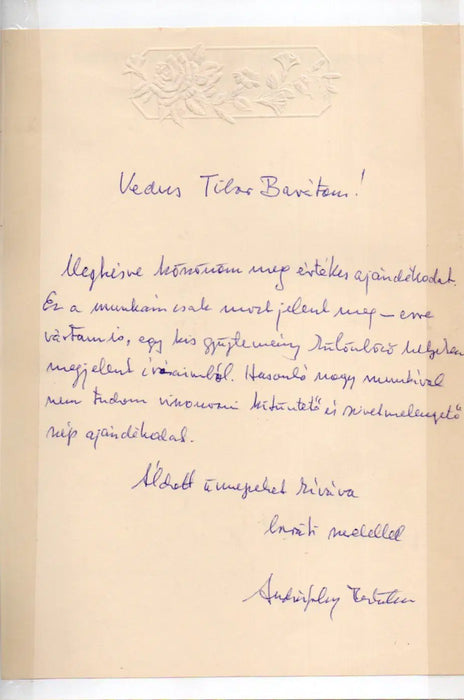 Kedves Tibor Barátom!
Megkésve köszönöm meg értékes ajándékodat.
Ez a munkám csak most jelent meg – erre
vártam is, egy kis gyűjtemény különböző helyeken
megjelent írásaimból. Hasonló nagy munkával
nem tudom viszonozni kitüntető és szivetmelengető
szép ajándékodat.
Áldott ünnepeket kívánva
baráti szeretettel